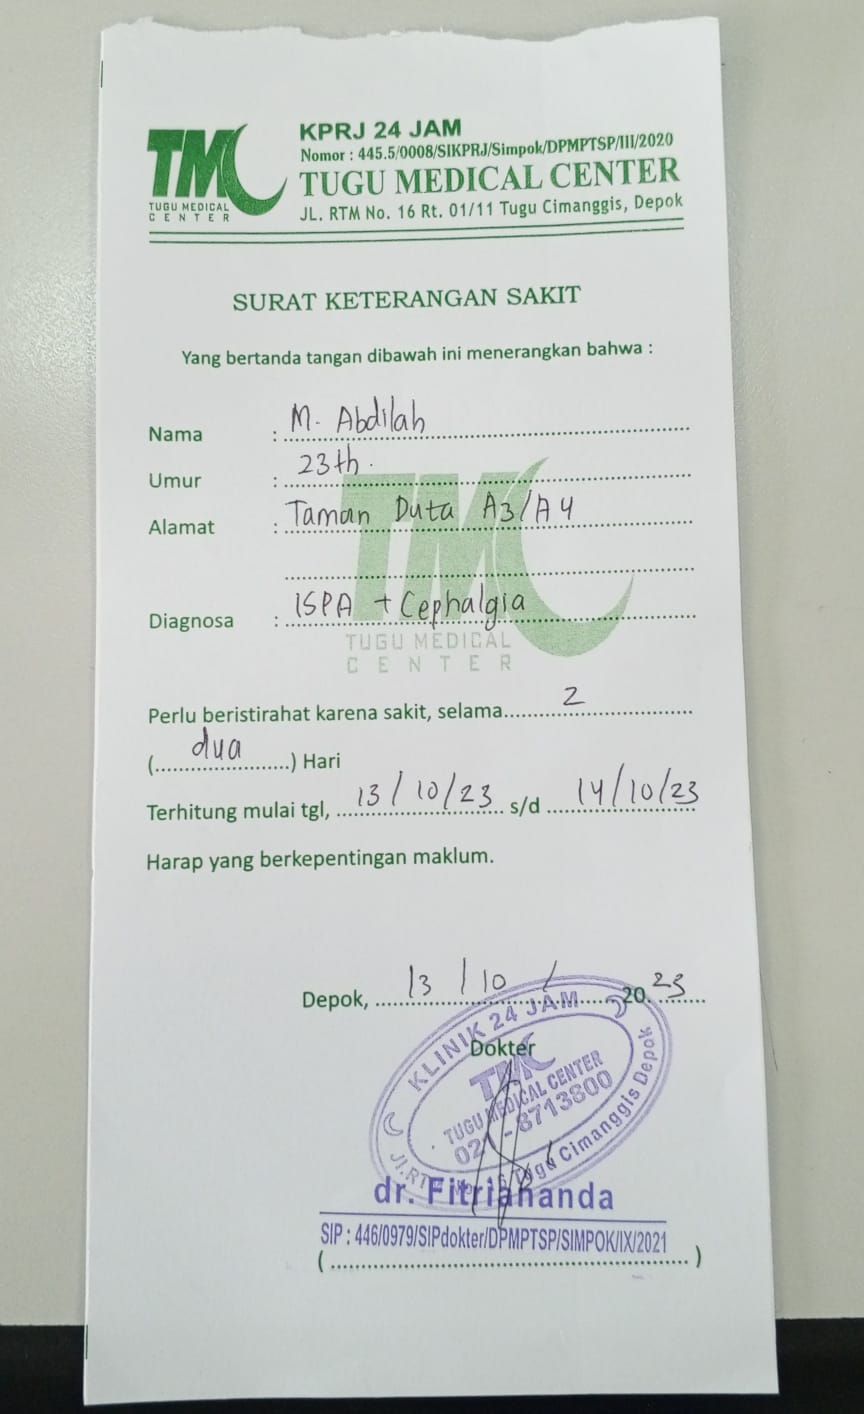 KPRJ 24 JAM
Nomor : 445.5/0008/SIKPRJ/Simpok/DPMPTSP/III/2020
TMC
TUGU MEDICAL
CENTER
TUGU MEDICAL CENTER
JL. RTM No. 16 Rt. 01/11 Tugu Cimanggis, Depok
SURAT KETERANGAN SAKIT
Yang bertanda tangan dibawah ini menerangkan bahwa :
Nama : M. Abdilah
Umur : 23th.
Alamat : Taman Duta A3/A4
Diagnosa : ISPA + Cephalgia
TMC
TUGU MEDICAL
CENTER
Perlu beristirahat karena sakit, selama 2
(dua) Hari
Terhitung mulai tgl, 13/10/23 s/d 14/10/23
Harap yang berkepentingan maklum.
Depok, 13 / 10 / 2023
Dokter
KLINIK 24 JAM
TMC
TUGU MEDICAL CENTER
021 - 8713800
Jl. RTM No. 16 Tugu Cimanggis Depok
dr. Fitriananda
SIP : 446/0979/SIPdokter/DPMPTSP/SIMPOK/IX/2021
(....................)